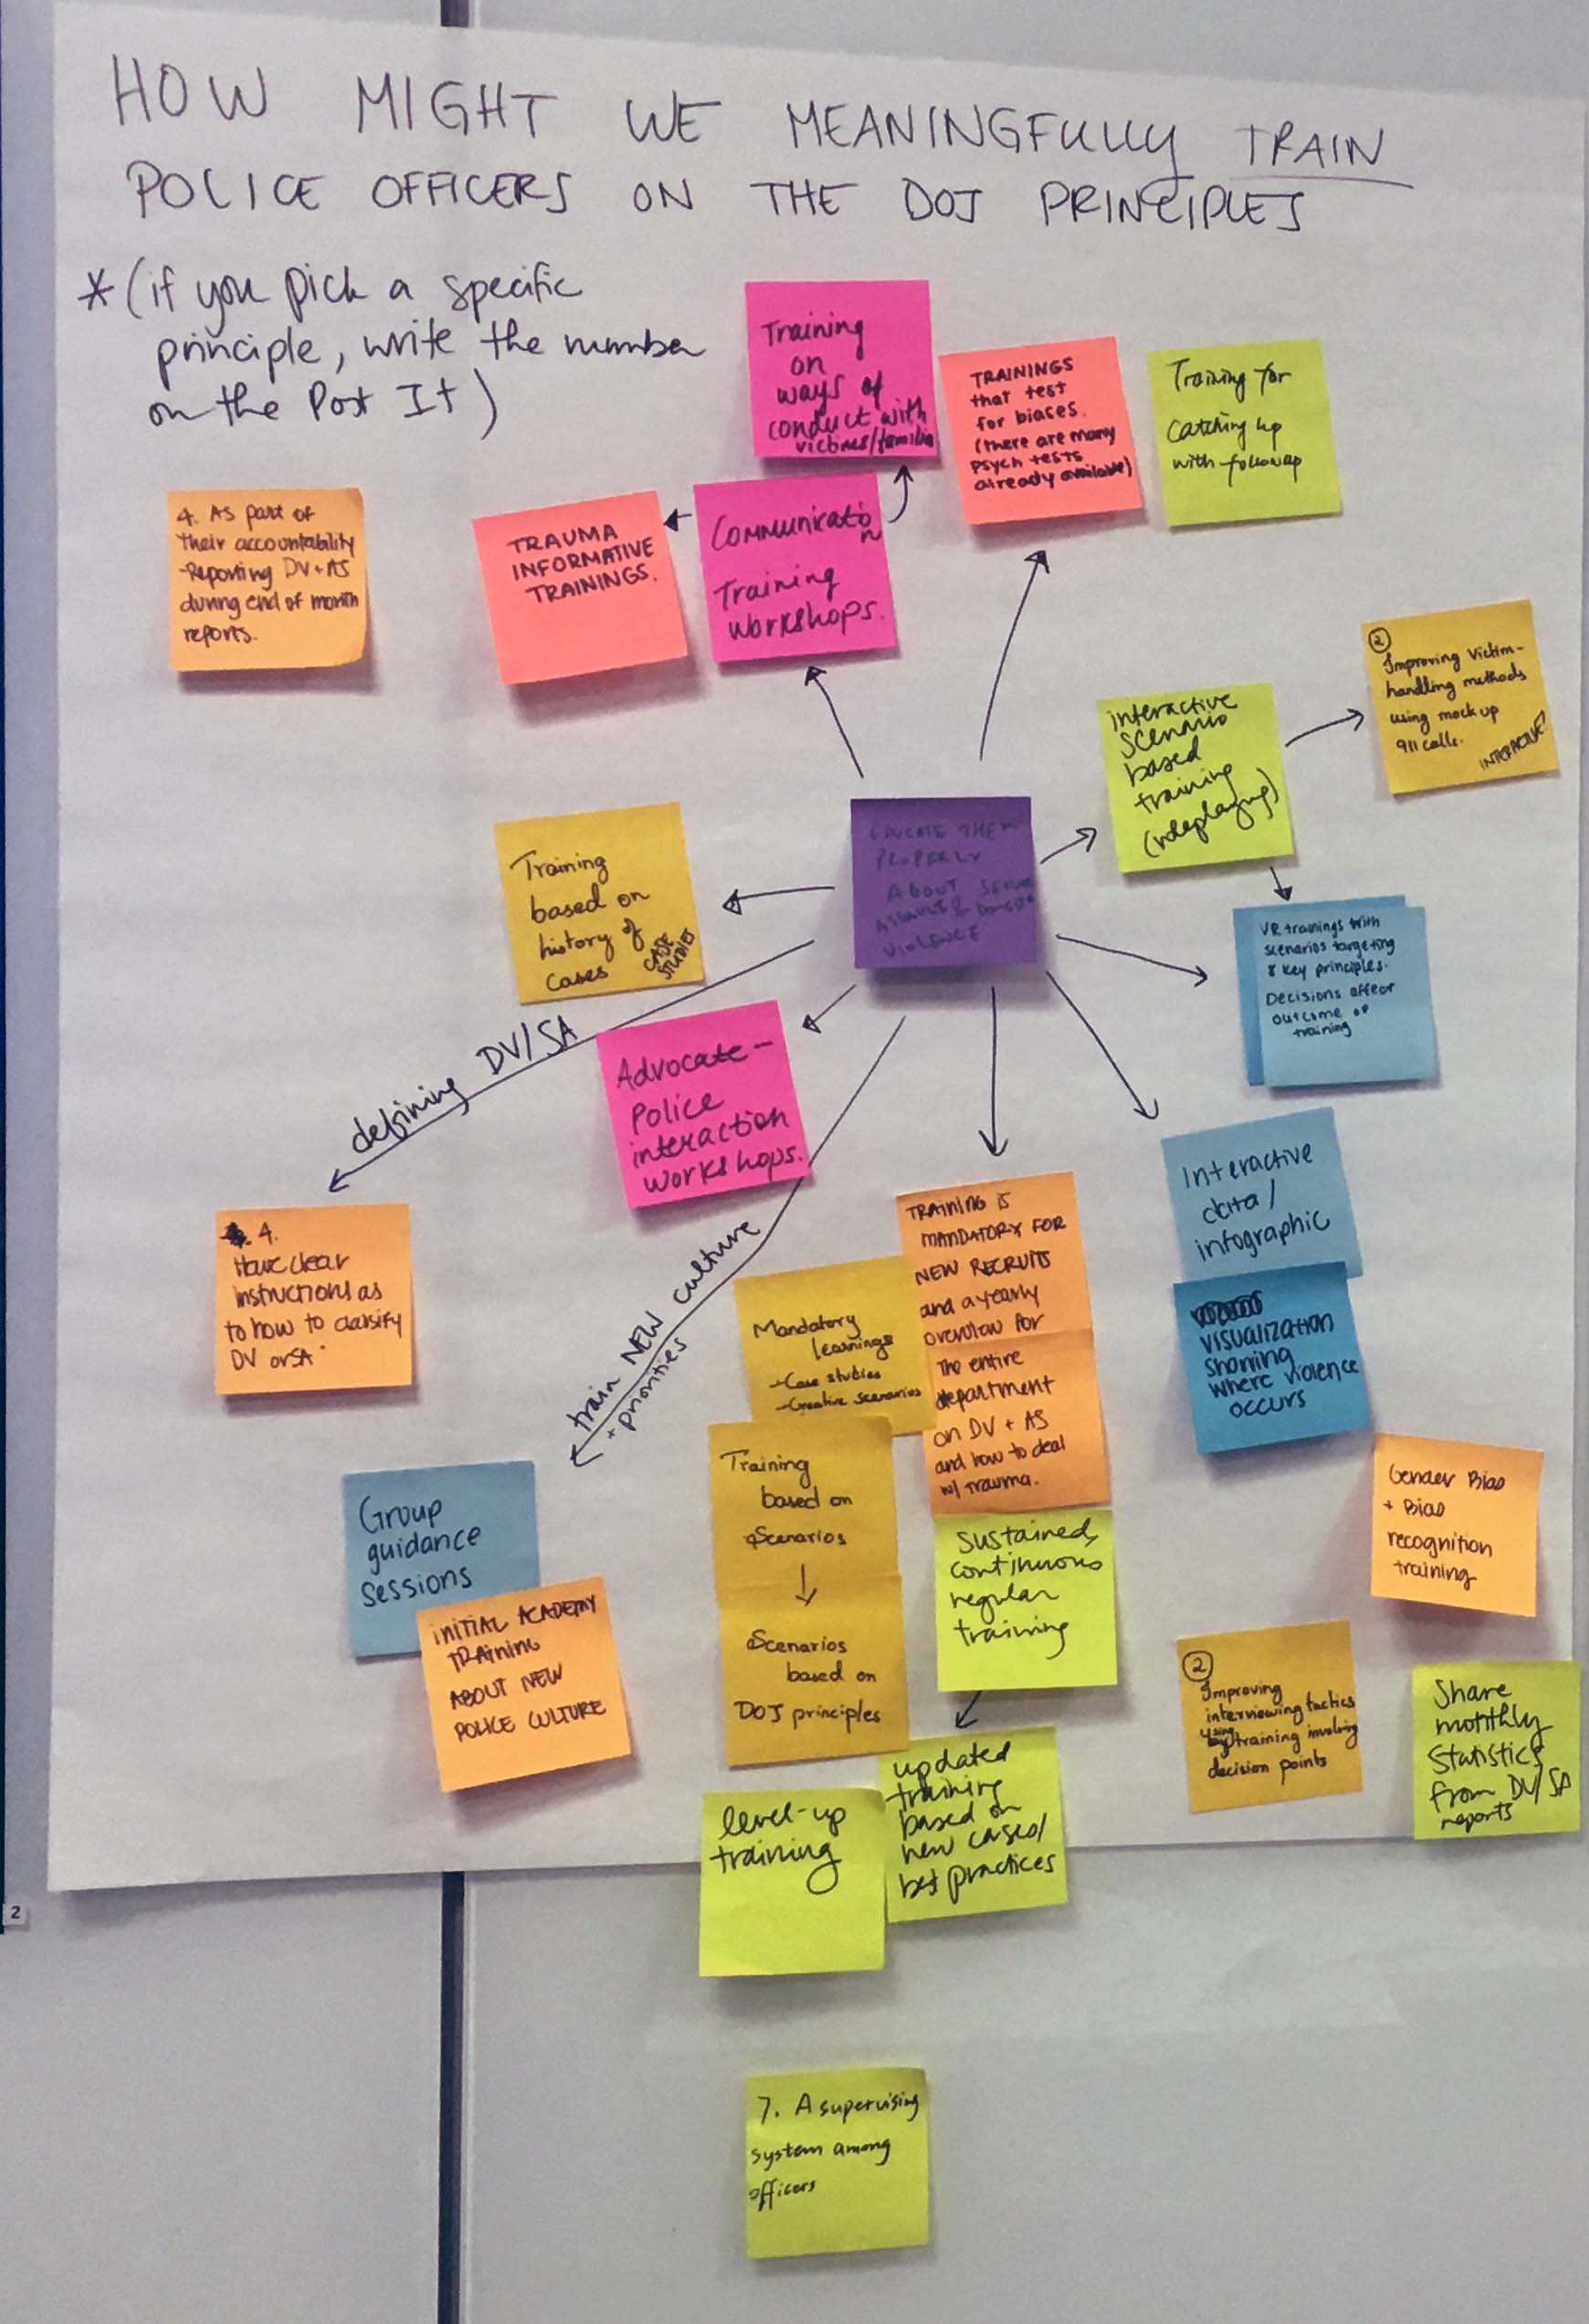 HOW MIGHT WE MEANINGFULLY TRAIN
POLICE OFFICERS ON THE DOJ PRINCIPLES
*(if you pick a specific
principle, write the number
on the Post It)
Training
on
ways of
conduct with
victims/familie
TRAININGS
that test
for biases.
(there are many
psych tests
already available)
Training for
catching up
with followup
4. AS part of
their accountability
-Reporting DV+AS
during end of month
reports.
TRAUMA
INFORMATIVE
TRAININGS.
Communicatio
n
Training
workshops.
②
Improving Victim-
handling methods
using mock up
911 calls.
INTERACTIVE
interactive
scenario
based
training
(roleplaying)
EDUCATE THEM
PROPERLY
ABOUT SEXUAL
ASSAULT & DOMESTIC
VIOLENCE
Training
based on
history of
cases
CASE
STUDIES
VR trainings with
scenarios targeting
8 key principles.
Decisions affect
outcome of
training
defining DV/SA
Advocate-
Police
interaction
workshops.
4.
Have clear
instructions as
to how to classify
DV or SA.
train NEW culture
+ priorities
TRAINING IS
MANDATORY FOR
NEW RECRUITS
and a yearly
overview for
The entire
department
on DV + AS
and how to deal
w/ trauma.
Interactive
data/
infographic
visualization
showing
where violence
occurs
Mandatory
learnings
-Case studies
-Creative scenarios
Training
based on
Scenarios
Scenarios
based on
DOJ principles
Group
guidance
sessions
INITIAL ACADEMY
TRAINING
ABOUT NEW
POLICE CULTURE
Sustained,
continuous
regular
training
Gender Bias
+ Bias
recognition
training
②
Improving
interviewing tactics
using training involving
decision points
Share
monthly
Statistics
from DV/SA
reports
updated
training
based on
new cases/
best practices
level-up
training
2
7. A supervising
system among
officers